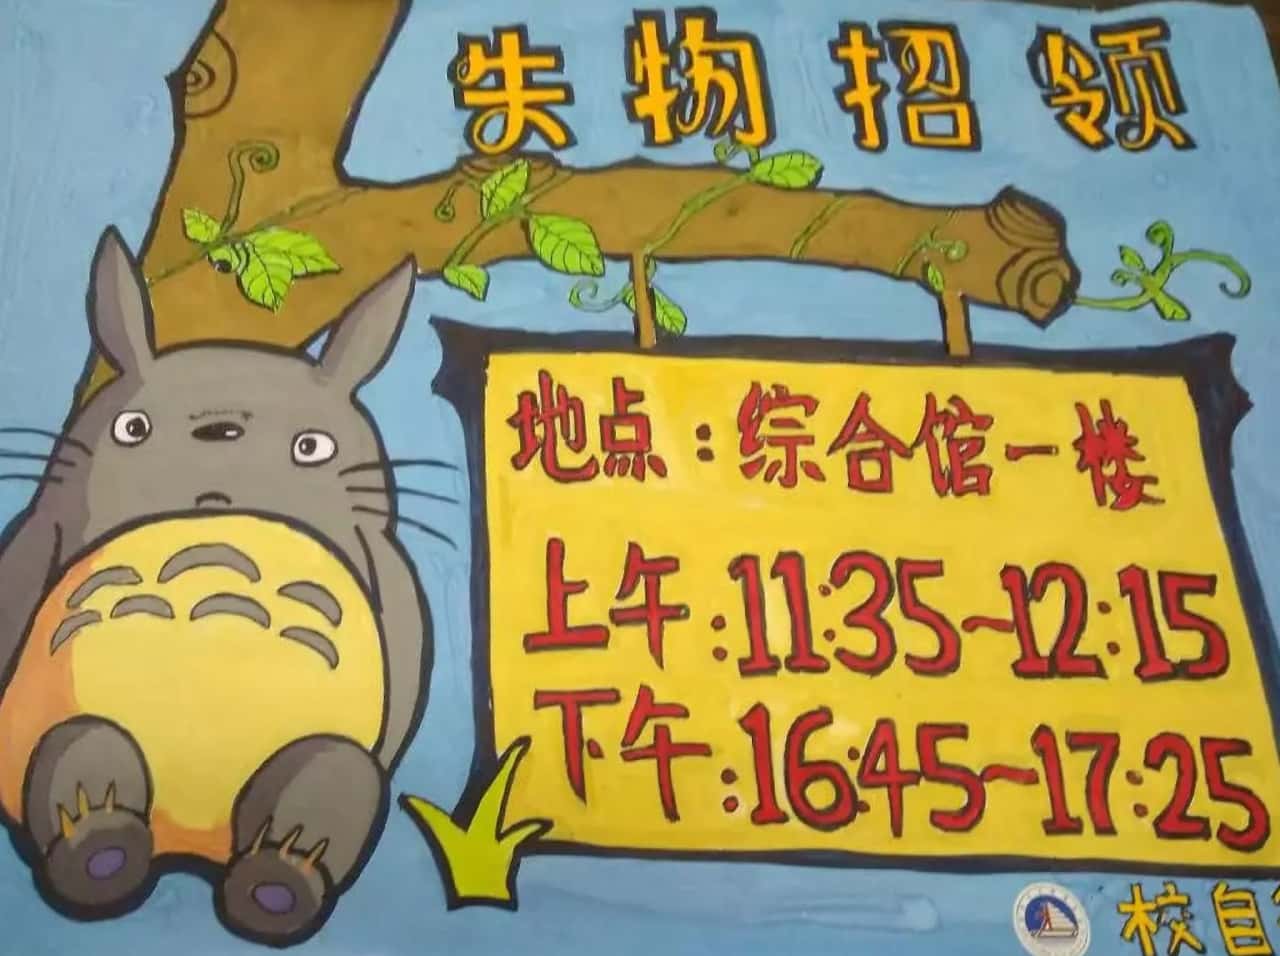 失物招领
地点:综合馆一楼
上午:11:35~12:15
下午:16:45~17:25
校自